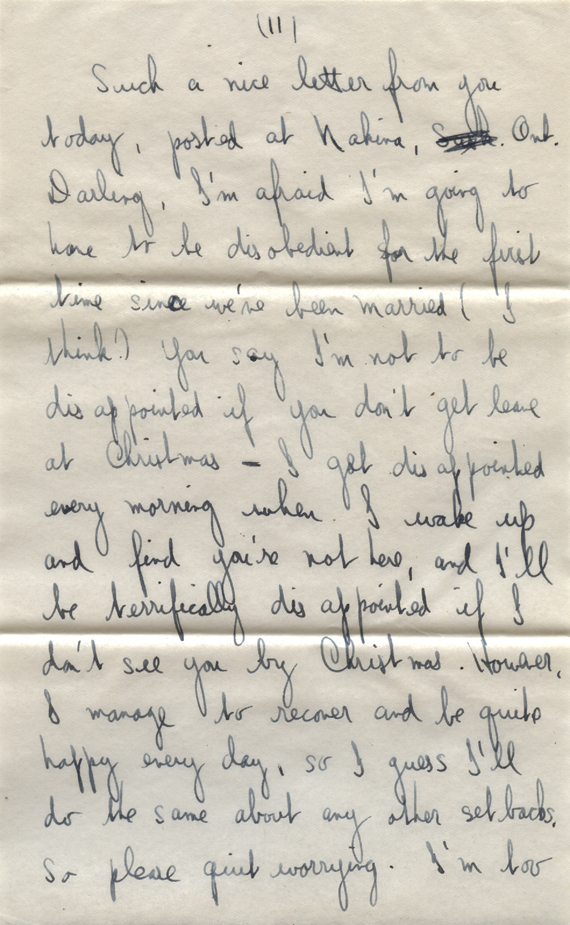 (11)
Such a nice letter from you
today, posted at Nakina, Ont.
Darling, I'm afraid I'm going to
have to be disobedient for the first
time since we've been married (I
think!) You say I'm not to be
disappointed if you don't get leave
at Christmas – I get disappointed
every morning when I wake up
and find you're not here, and I'll
be terrifically disappointed if I
don't see you by Christmas. However,
I manage to recover and be quite
happy every day, so I guess I'll
do the same about any other setbacks.
So please quit worrying. I'm too